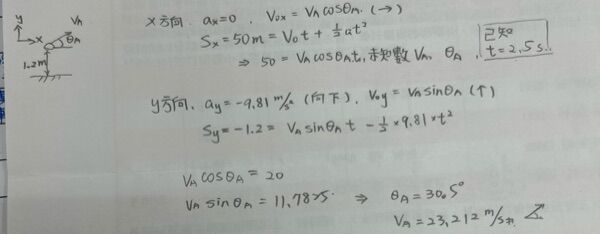 y
x
V_A
θ_A
1.2m
X方向. a_x=0 . V_ox = V_A cosθ_A. (→)
S_x = 50m = V_0 t + 1/2 at²
⇒ 50 = V_A cosθ_A t, 未知數 V_A, θ_A
已知
t = 2.5 s.
y方向. a_y = -9.81 m/s² (向下). V_oy = V_A sinθ_A (↑)
S_y = -1.2 = V_A sinθ_A t - 1/2 × 9.81 × t²
V_A cosθ_A = 20
V_A sinθ_A = 11.7825. ⇒ θ_A = 30.5°
V_A = 23.212 m/s